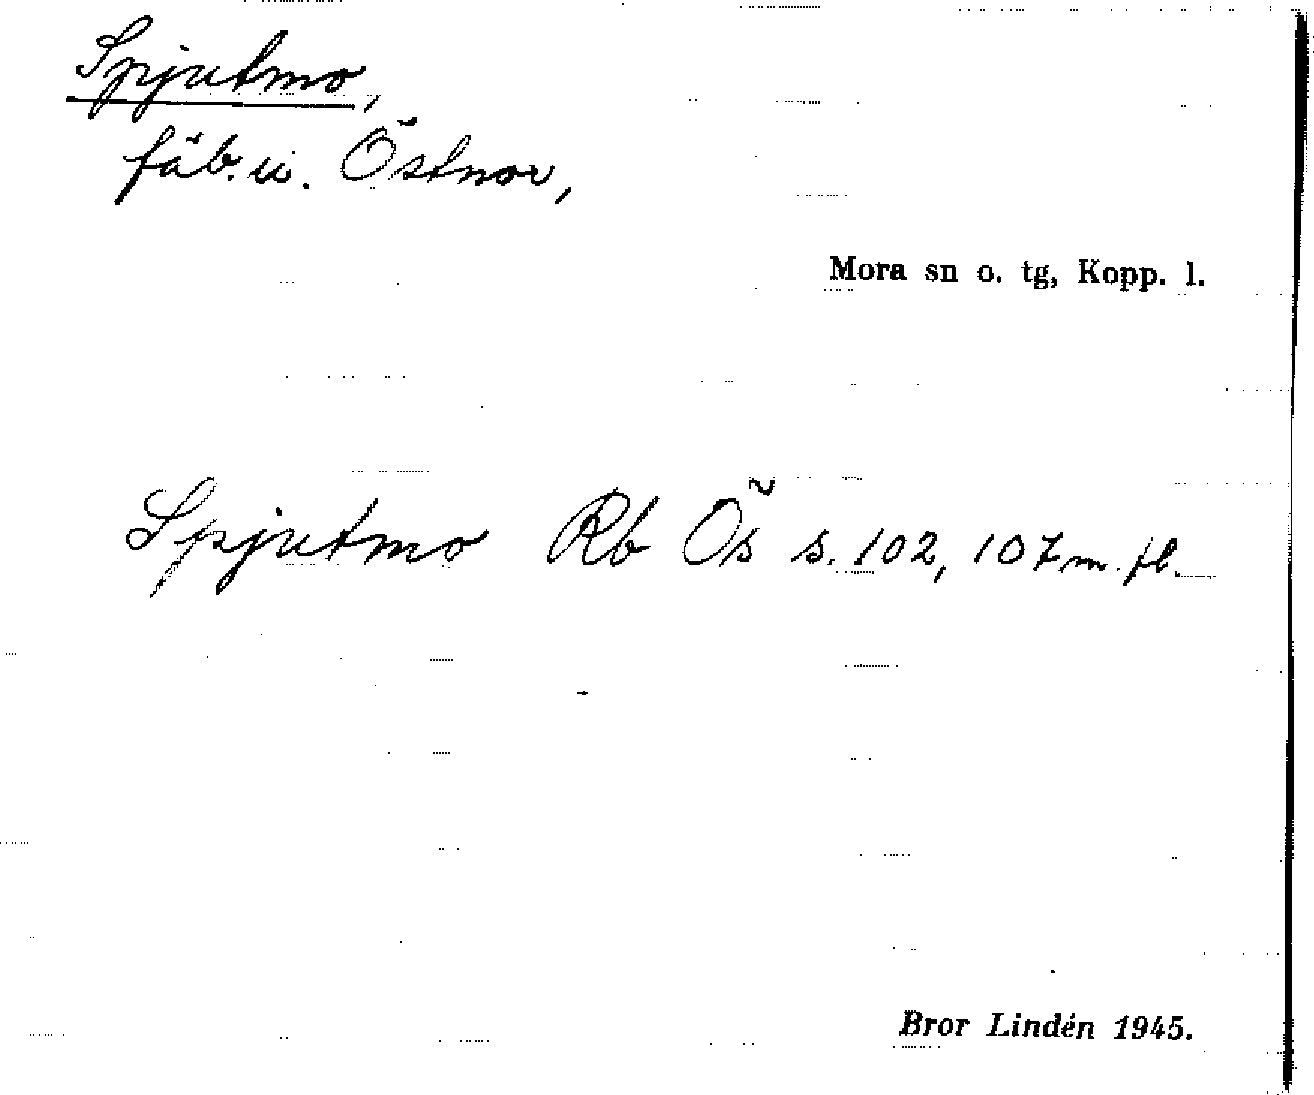 Spjutmo,
fäb. u. Östnor,
Mora sn o. tg, Kopp. l.
Spjutmo Rb Ös s. 102, 107 m. fl.
Bror Lindén 1945.